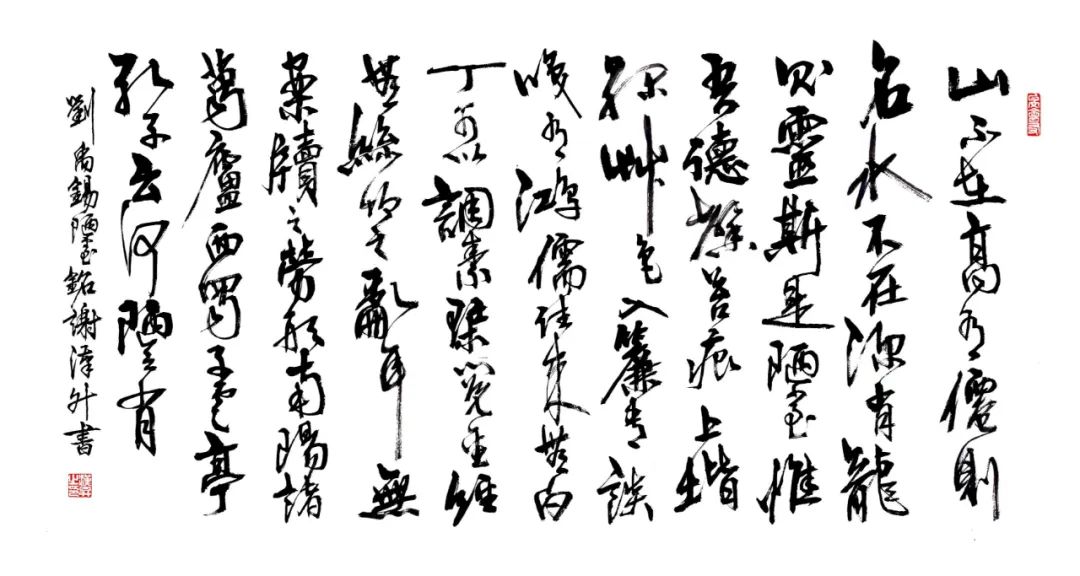 山不在高有僊則
名水不在深有龍
則靈斯是陋室惟
吾德馨苔痕上堦
綠艸色入簾青談
咲有鴻儒往來無白
丁可以調素琴閱金經
無絲竹之亂耳無
案牘之勞形南陽諸
葛廬西蜀子雲亭
孔子云何陋之有
劉禹錫陋室銘謝澤外書